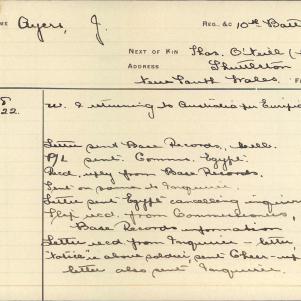 ME Ayers, J. REG. &C 10th Batt
NEXT OF KIN Thos. O'Neill
ADDRESS
New South Wales F
22. W. I returning to Australia per Euripi
Letter sent Base Records, Melb.
P/L sent Comms. Egypt.
Recd. reply from Base Records.
Sent on same to Inquirer.
Letter sent Egypt cancelling inquir
Slip recd. from Commissioners,
Base Records information
Letter recd from Inquirer - letter,
is above soldier, sent Cheer-up
letter also sent Inquirer.